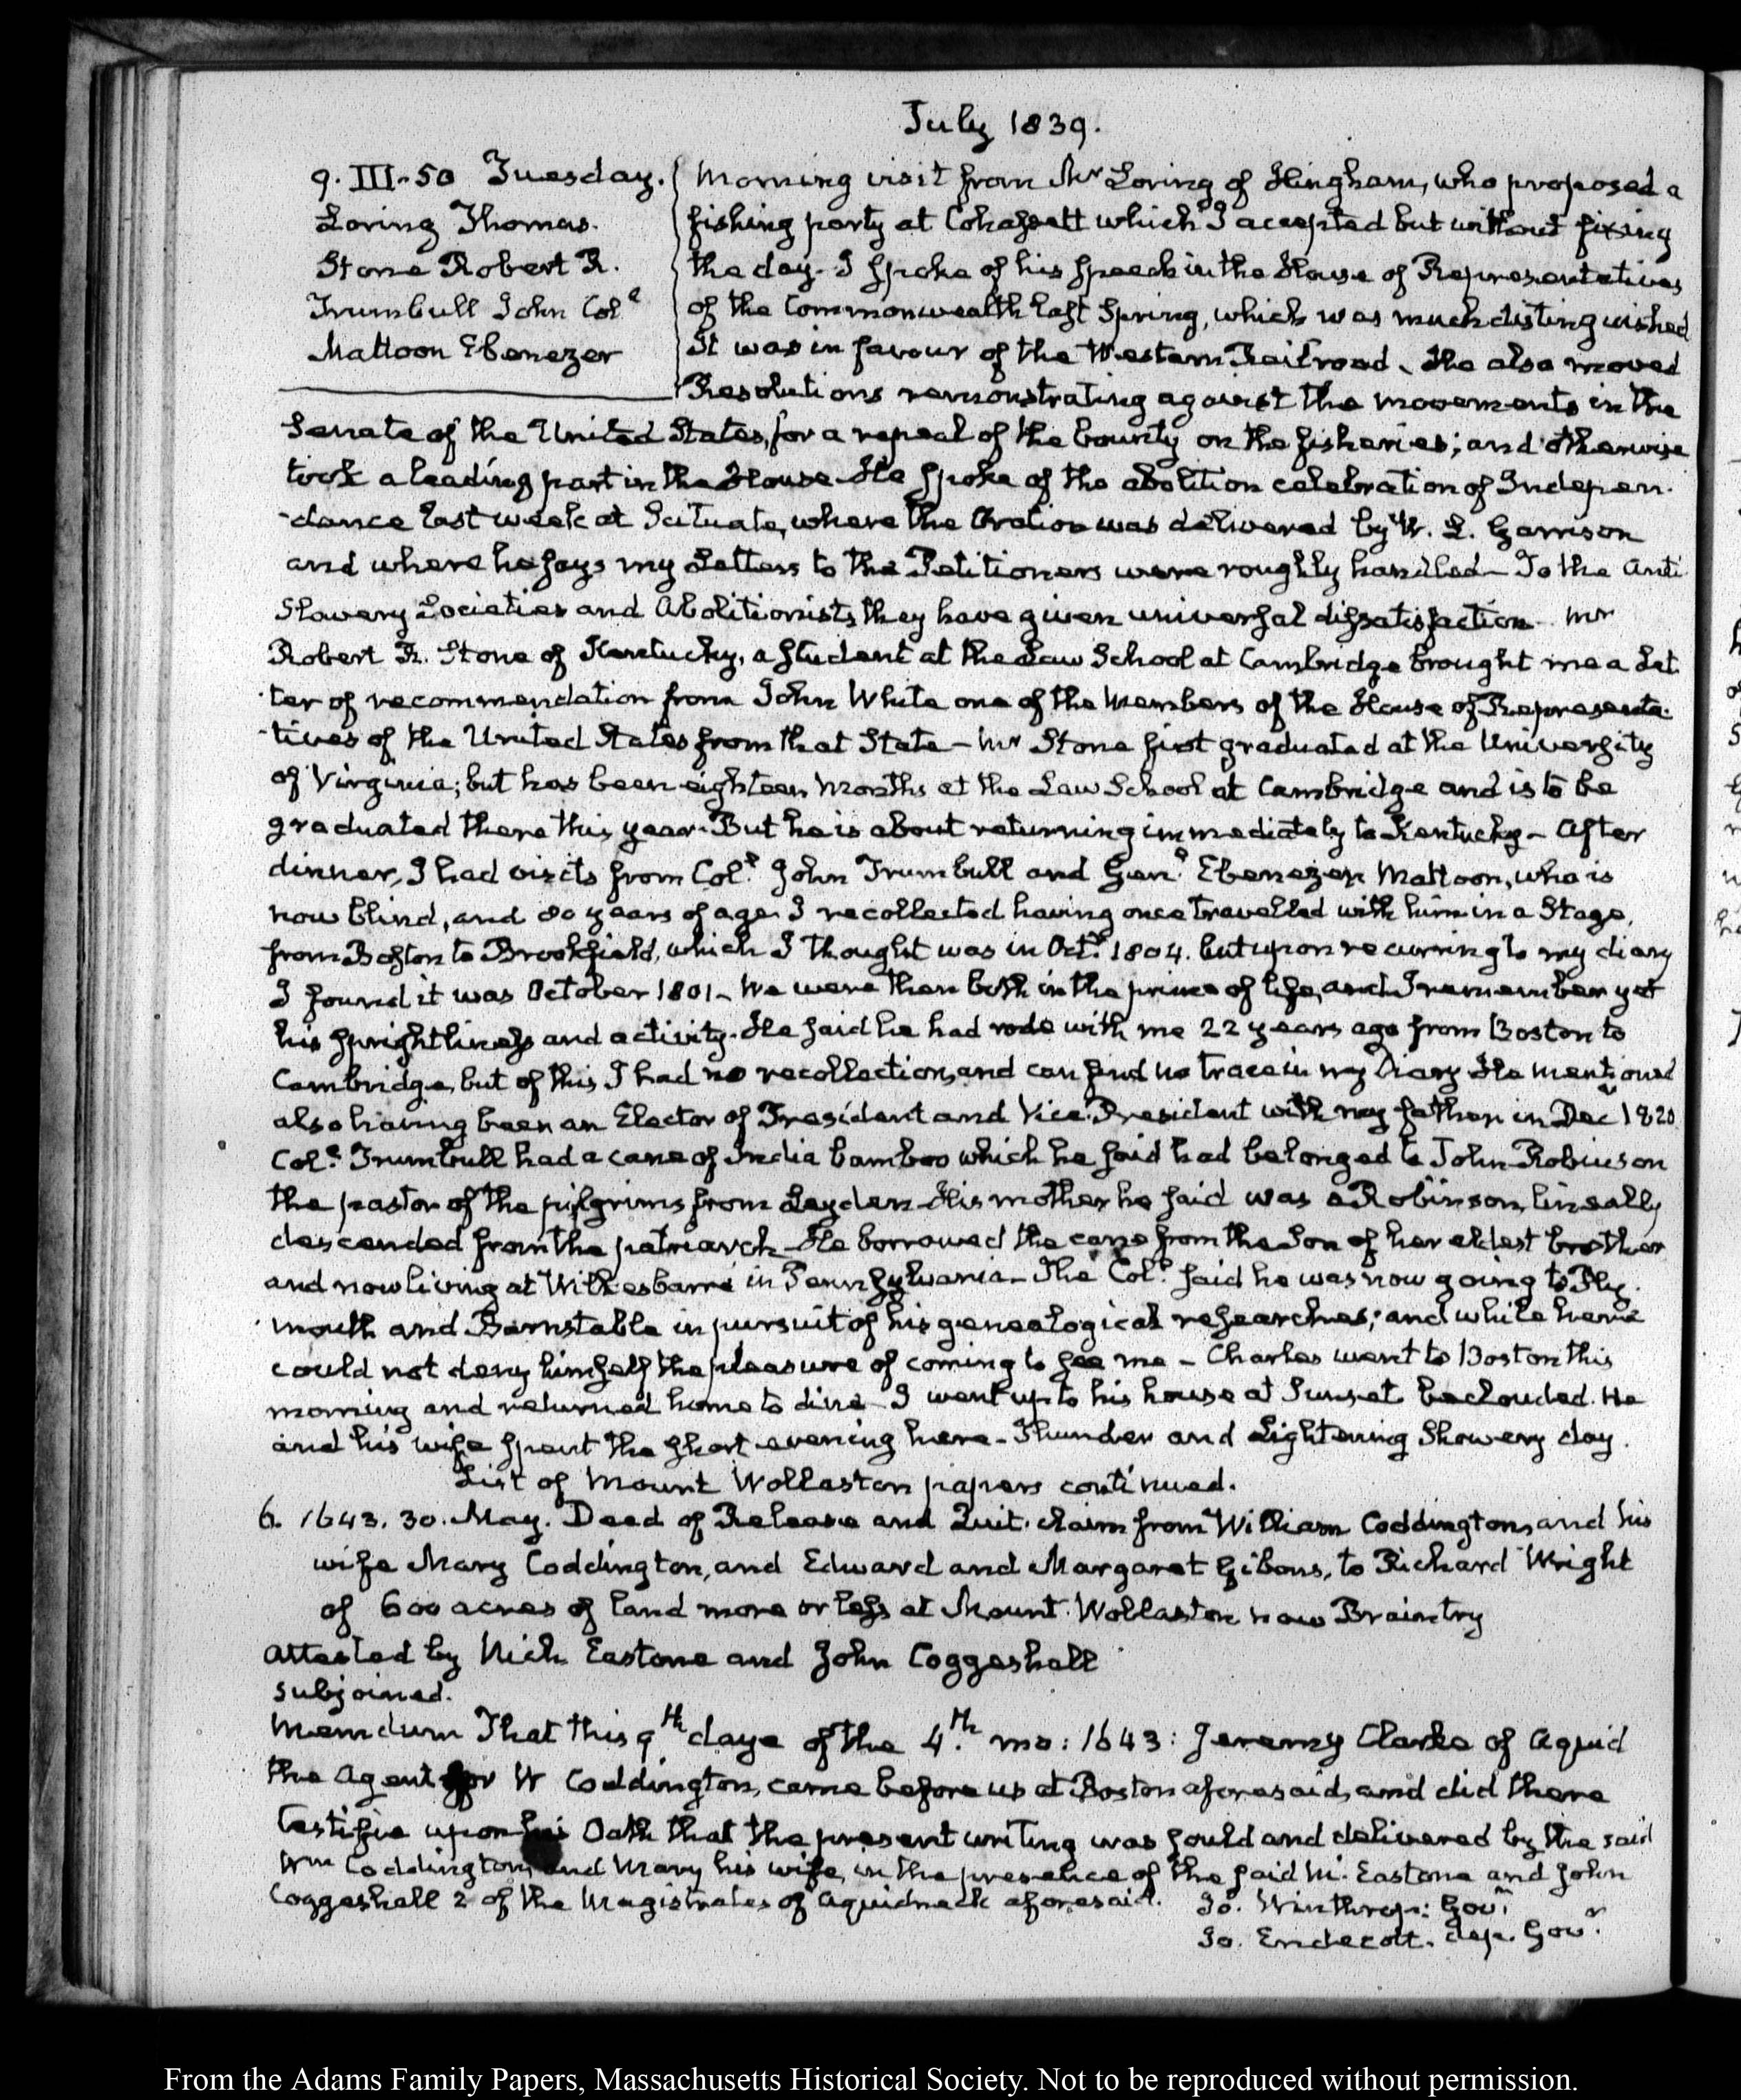 July 1839.
9. III-50 Tuesday.
Loring Thomas.
Stone Robert R.
Trumbull John Col.
Mattoon Ebenezer
Morning visit from Mr Loring of Hingham, who proposed a
fishing party at Cohassett which I accepted but without fixing
the day. I spoke of his speech in the House of Representatives
of the Commonwealth last Spring, which was much distinguished
It was in favour of the Western Railroad. He also moved
Resolutions remonstrating against the movements in the
Senate of the United States, for a repeal of the bounty on the fisheries; and otherwise
took a leading part in the House. He spoke of the abolition celebration of Indepen-
-dence last week at Scituate, where the Oration was delivered by W. L. Garrison
and where he says my Letters to the Petitioners were roughly handled— To the Anti
Slavery Societies and Abolitionists, they have given universal dissatisfaction. Mr
Robert R. Stone of Kentucky, a student at the Law School at Cambridge brought me a Let
-ter of recommendation from John White one of the Members of the House of Representa-
-tives of the United States from that State— Mr Stone first graduated at the University
of Virginia; but has been eighteen Months at the Law School at Cambridge and is to be
graduated there this year. But he is about returning immediately to Kentucky— After
dinner, I had visits from Col. John Trumbull and Gen. Ebenezer Mattoon, who is
now blind, and 80 years of age. I recollected having once travelled with him in a Stage,
from Boston to Brookfield, which I thought was in Oct. 1804. but upon recurring to my diary
I found it was October 1801— We were then both in the prime of life, and I remember yet
his sprightliness and activity. He said he had rode with me 22 years ago from Boston to
Cambridge, but of this I had no recollection, and can find no trace in my Diary He mentioned
also having been an Elector of President and Vice-President with my father in Dec 1820.
Col. Trumbull had a cane of India bamboo which he said had belonged to John Robinson
the pastor of the pilgrims from Leyden. His mother he said was a Robinson, lineally
descended from the patriarch. He borrowed the cane from the Son of her eldest brother
and now living at Wilkesbarre in Pennsylvania— The Col. said he was now going to Ply-
-mouth and Barnstable in pursuit of his genealogical researches; and while here
could not deny himself the pleasure of coming to see me— Charles went to Boston this
morning and returned home to dine. I went up to his house at Sunset beclouded. He
and his wife spent the short evening here— Thunder and Lightening Showery day.
List of Mount Wollaston papers continued.
6. 1643. 30. May. Deed of Release and Quit-claim from William Coddington, and his
wife Mary Coddington, and Edward and Margaret Gibons, to Richard Wright
of 600 acres of land more or less at Mount Wollaston now Braintry
attested by Nich Eastone and John Coggeshall
subjoined.
Memdum That this 9th daye of the 4.th mo: 1643: Jeremy Clarke of Aquid
the Agent for W Coddington, came before us at Boston aforesaid, and did there
testifie upon his Oath that the present writing was sould and delivered by the said
Wm Coddington, and Mary his wife, in the presence of the said Ni. Eastone and John
Coggeshall 2 of the Magistrates of Aquidneck aforesaid.
Jo. Winthrop: Gov.r
Jo. Endecott. dep. Gov.r
From the Adams Family Papers, Massachusetts Historical Society. Not to be reproduced without permission.